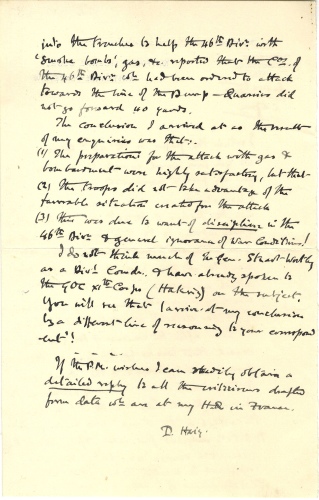 into the trenches to help the 46th Divn. with
'smoke bombs', gas, &c. reported that the Coys. of
the 46th Divn. wh. had been ordered to attack
towards the line of the Dump – Quarries did
not go forward 40 yards.
The conclusion I arrived at as the result
of my enquiries was that:-
(1) The preparations for the attack with gas &
bombardment were highly satisfactory, but that
(2) the troops did not take advantage of the
favorable situation created for the attack
(3) this was due to want of discipline in the
46th Divn. & general ignorance of War Conditions!
I do not think much of Genl. Stuart-Wortley
as a Divl. Comdr. & have already spoken to
the GOC XIth Corps (Haking) on the subject.
You will see that I arrive at my conclusion
by a different line of reasoning to your correspond
ent!
If the P.M. wishes I can readily obtain a
detailed reply to all the criticisms drafted
from data wh. are at my H.Q. in France.
D. Haig.